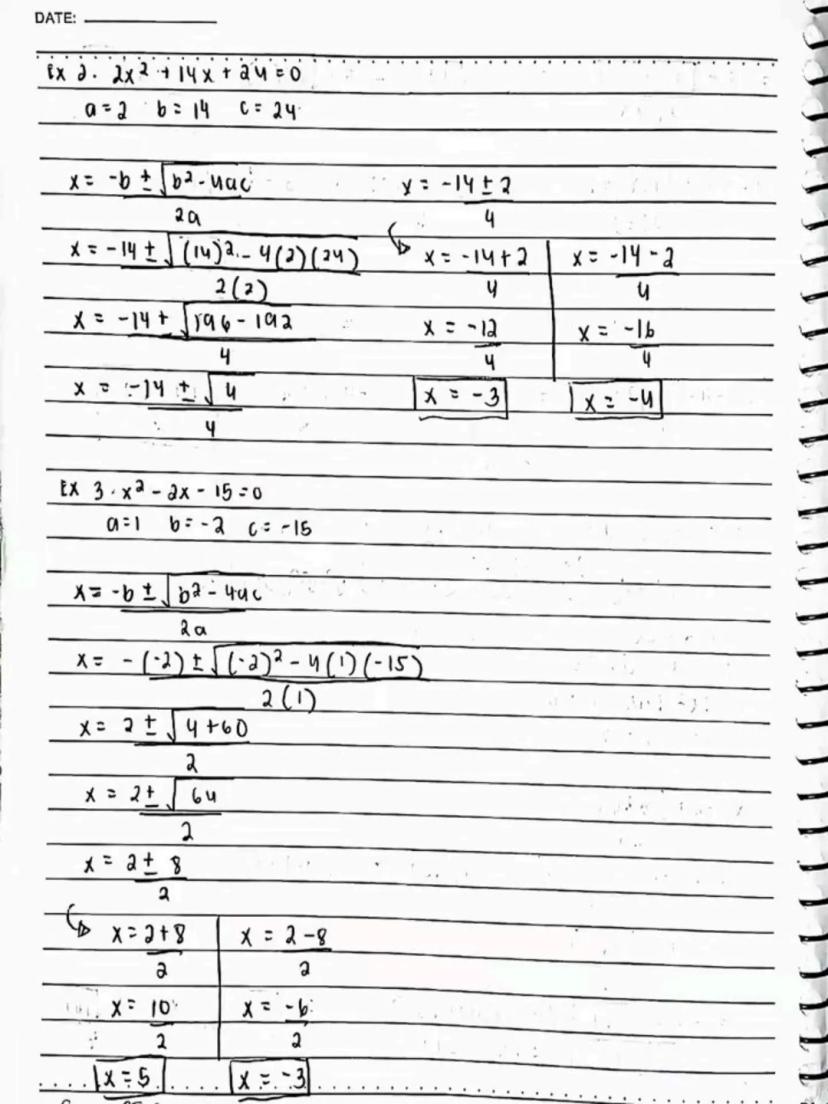 DATE:
Ex 2. 2x² + 14x + 24 = 0
a = 2 b = 14 c = 24
x = -b ± √b² - 4ac
2a
x = -14 ± √(14)² - 4(2)(24)
2(2)
x = -14 + √196 - 192
4
x = -14 ± √4
4
x = -14 ± 2
4
x = -14 + 2
4
x = -12
4
x = -3
x = -14 - 2
4
x = -16
4
x = -4
Ex 3. x² - 2x - 15 = 0
a = 1 b = -2 c = -15
x = -b ± √b² - 4ac
2a
x = -(-2) ± √(-2)² - 4(1)(-15)
2(1)
x = 2 ± √4 + 60
2
x = 2 ± √64
2
x = 2 ± 8
2
x = 2 + 8
2
x = 10
2
x = 5
x = 2 - 8
2
x = -6
2
x = -3